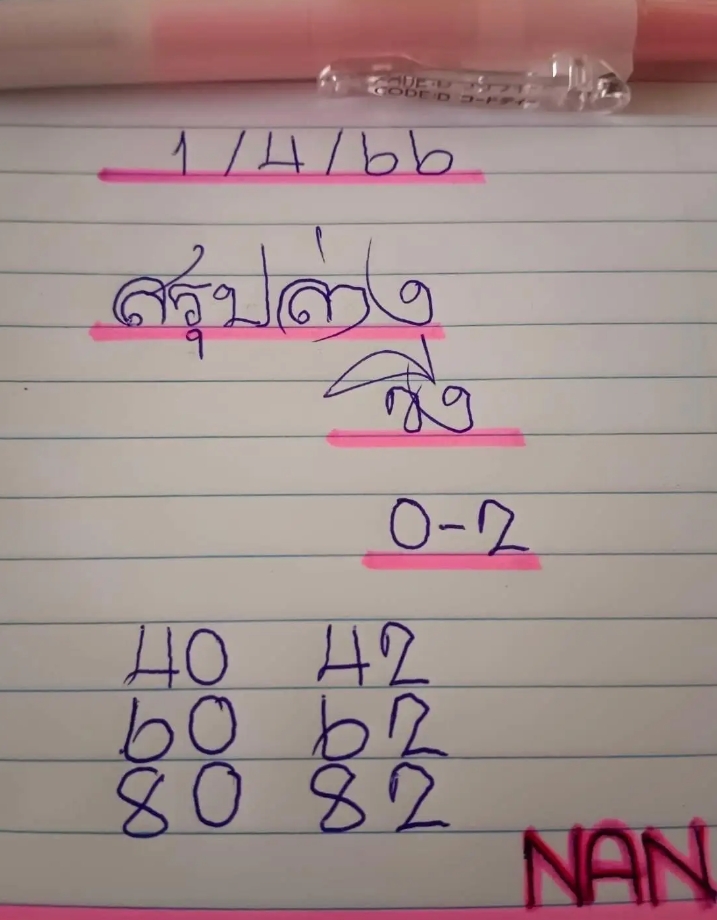 1/4/66
สรุปล่าง
ซึ่ง
0-2
40 42
60 62
80 82
NAN